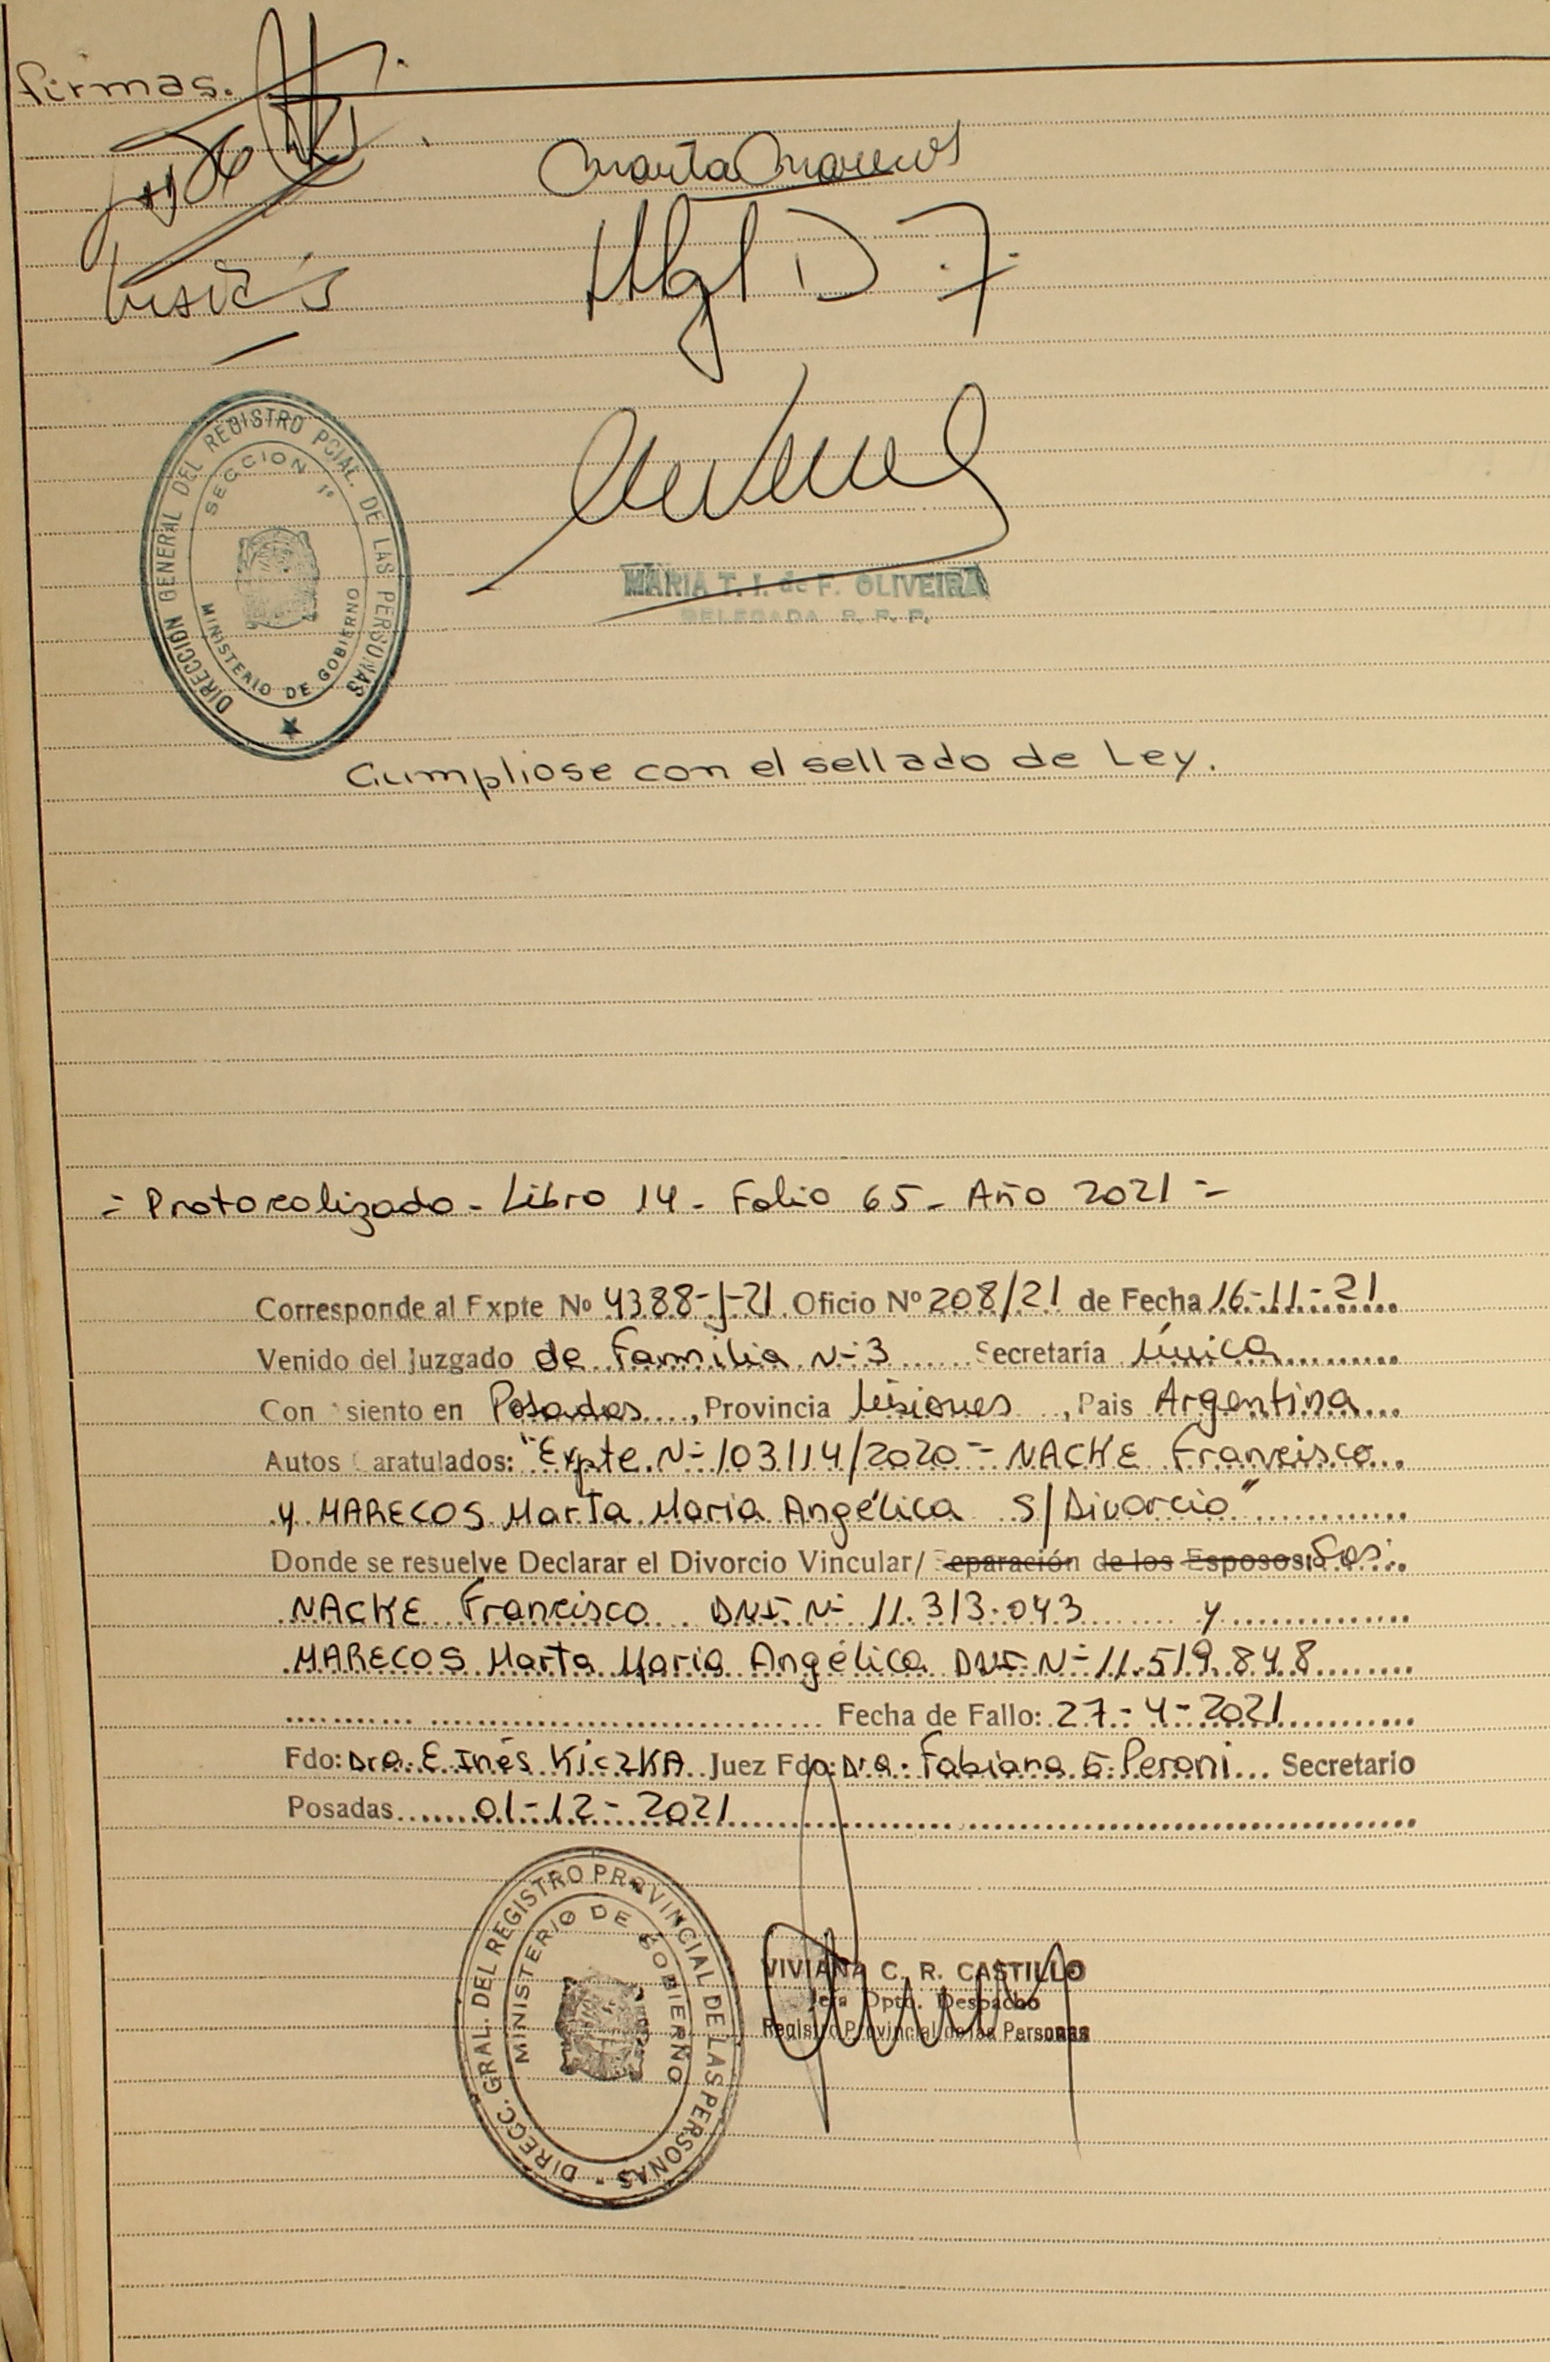 firmas.
Marta Marecos
DIRECCION GENERAL DEL REGISTRO PCIAL. DE LAS PERSONAS
SECCION 1º
MINISTERIO DE GOBIERNO
MARIA T. I. de F. OLIVEIRA
DELEGADA R. P. P.
Cumpliose con el sellado de Ley.
= Protocolizado - Libro 14 - Folio 65 - Año 2021 =
Corresponde al Expte Nº 4388-J-21 Oficio Nº 208/21 de Fecha 16-11-21
Venido del Juzgado de Familia Nº 3 Secretaría Única
Con asiento en Posadas, Provincia Misiones, Pais Argentina
Autos Caratulados: "Expte. Nº 103114/2020 - NACKE Francisco
y MARECOS Marta Maria Angélica S/Divorcio"
Donde se resuelve Declarar el Divorcio Vincular/ Separación de los Esposos: Sres:
NACKE Francisco DNI Nº 11.313.043 y
MARECOS Marta Maria Angélica DNI Nº 11.519.848
Fecha de Fallo: 27-4-2021
Fdo: Dra. E. Inés KiczKA Juez Fdo: Dra. Fabiana G. Peroni Secretario
Posadas 01-12-2021
DIRECC. GRAL. DEL REGISTRO PROVINCIAL DE LAS PERSONAS
MINISTERIO DE GOBIERNO
VIVIANA C. R. CASTILLO
Jefa Dpto. Despacho
Registro Provincial de las Personas